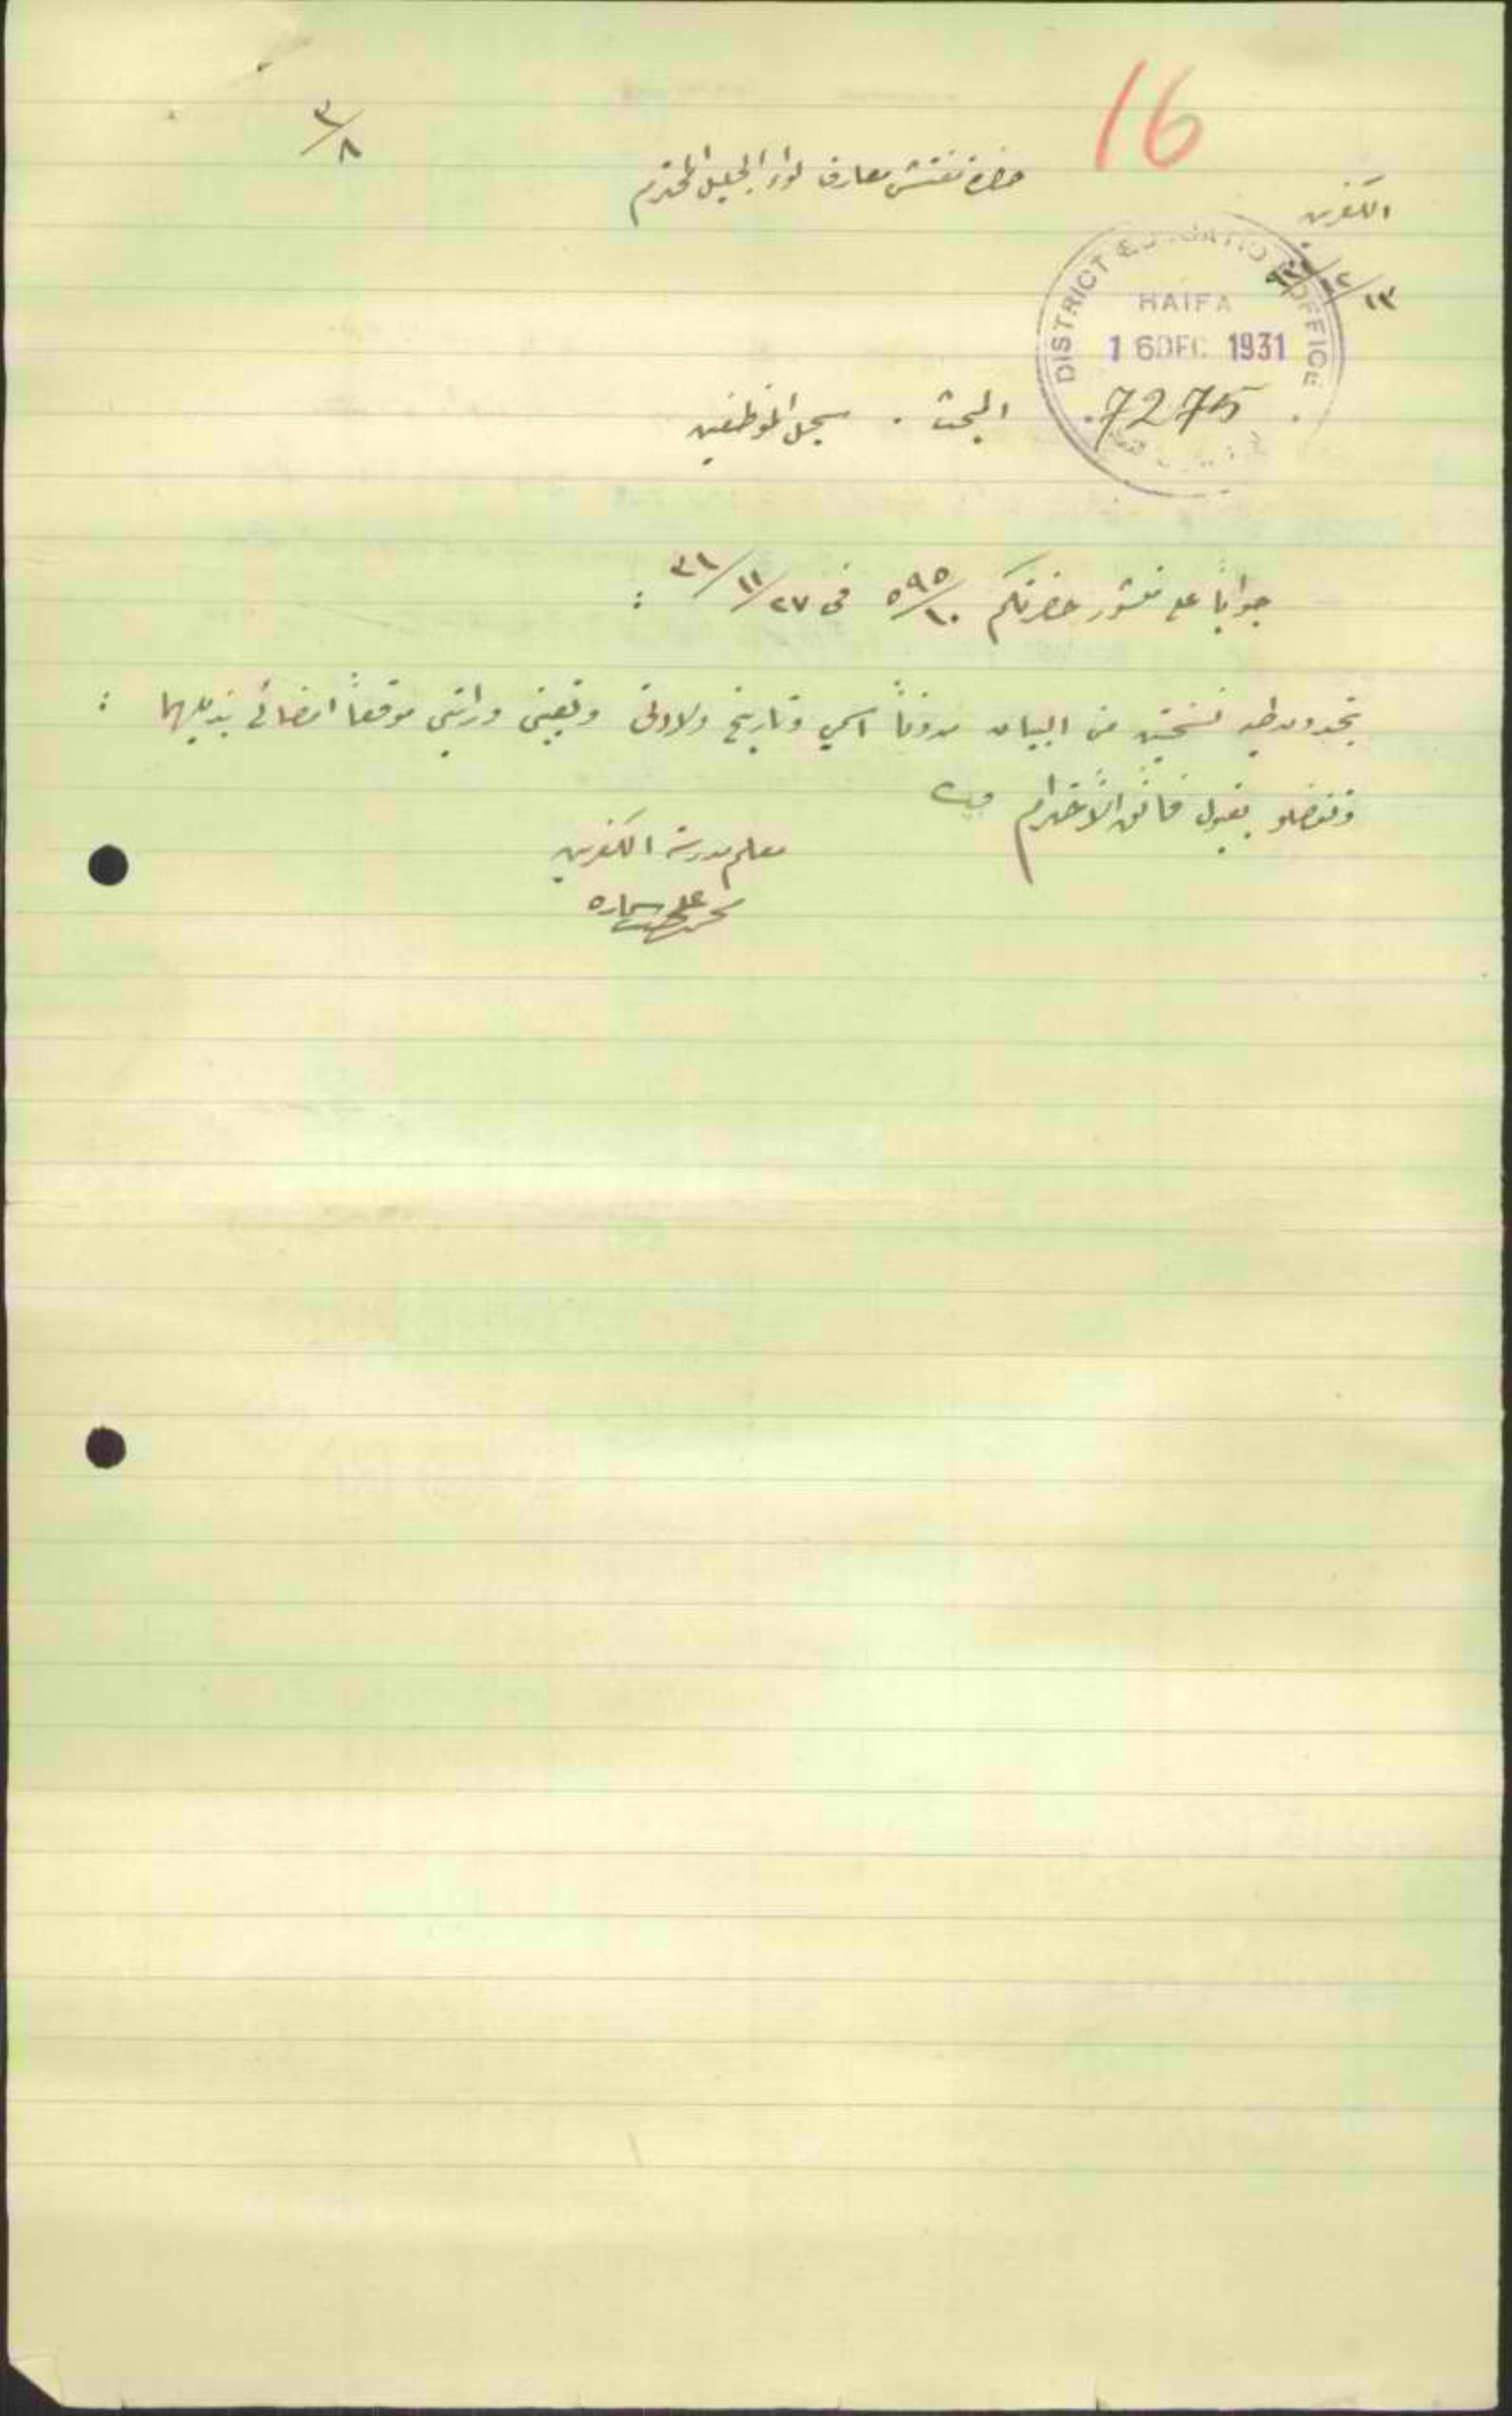 16
٣/٨
حضرة مفتش معارف لواء الجليل المحترم
الكفرين
١٣/١٢/٩٣١
DISTRICT EDUCATION OFFICE
HAIFA
16 DEC 1931
7275
البحث . سجل الموظفين
جواباً على منشور حضرتكم ٥٩٥/١٠ في ٢٧/١١/٣١ :
تجدون طيه نسختين من البيان مدوناً اسمي وتاريخ ولادتي وتعييني وراتبي موقعاً امضائي بذيلهما :
وتفضلو بقبول فائق الاحترام
معلم مدرسة الكفرين
علي سماره